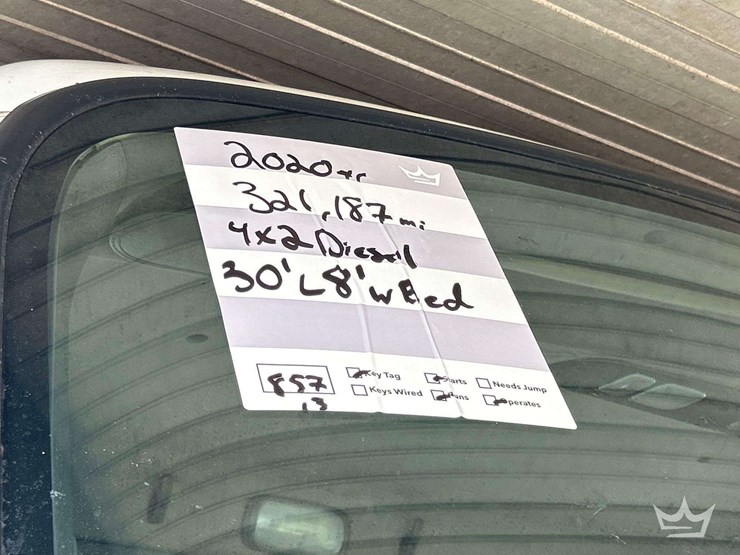 2020 yr
321,187 mi
4x2 Diesel
30' L 8' w Bed
857
13
Key Tag Starts Needs Jump
Keys Wired Runs Operates